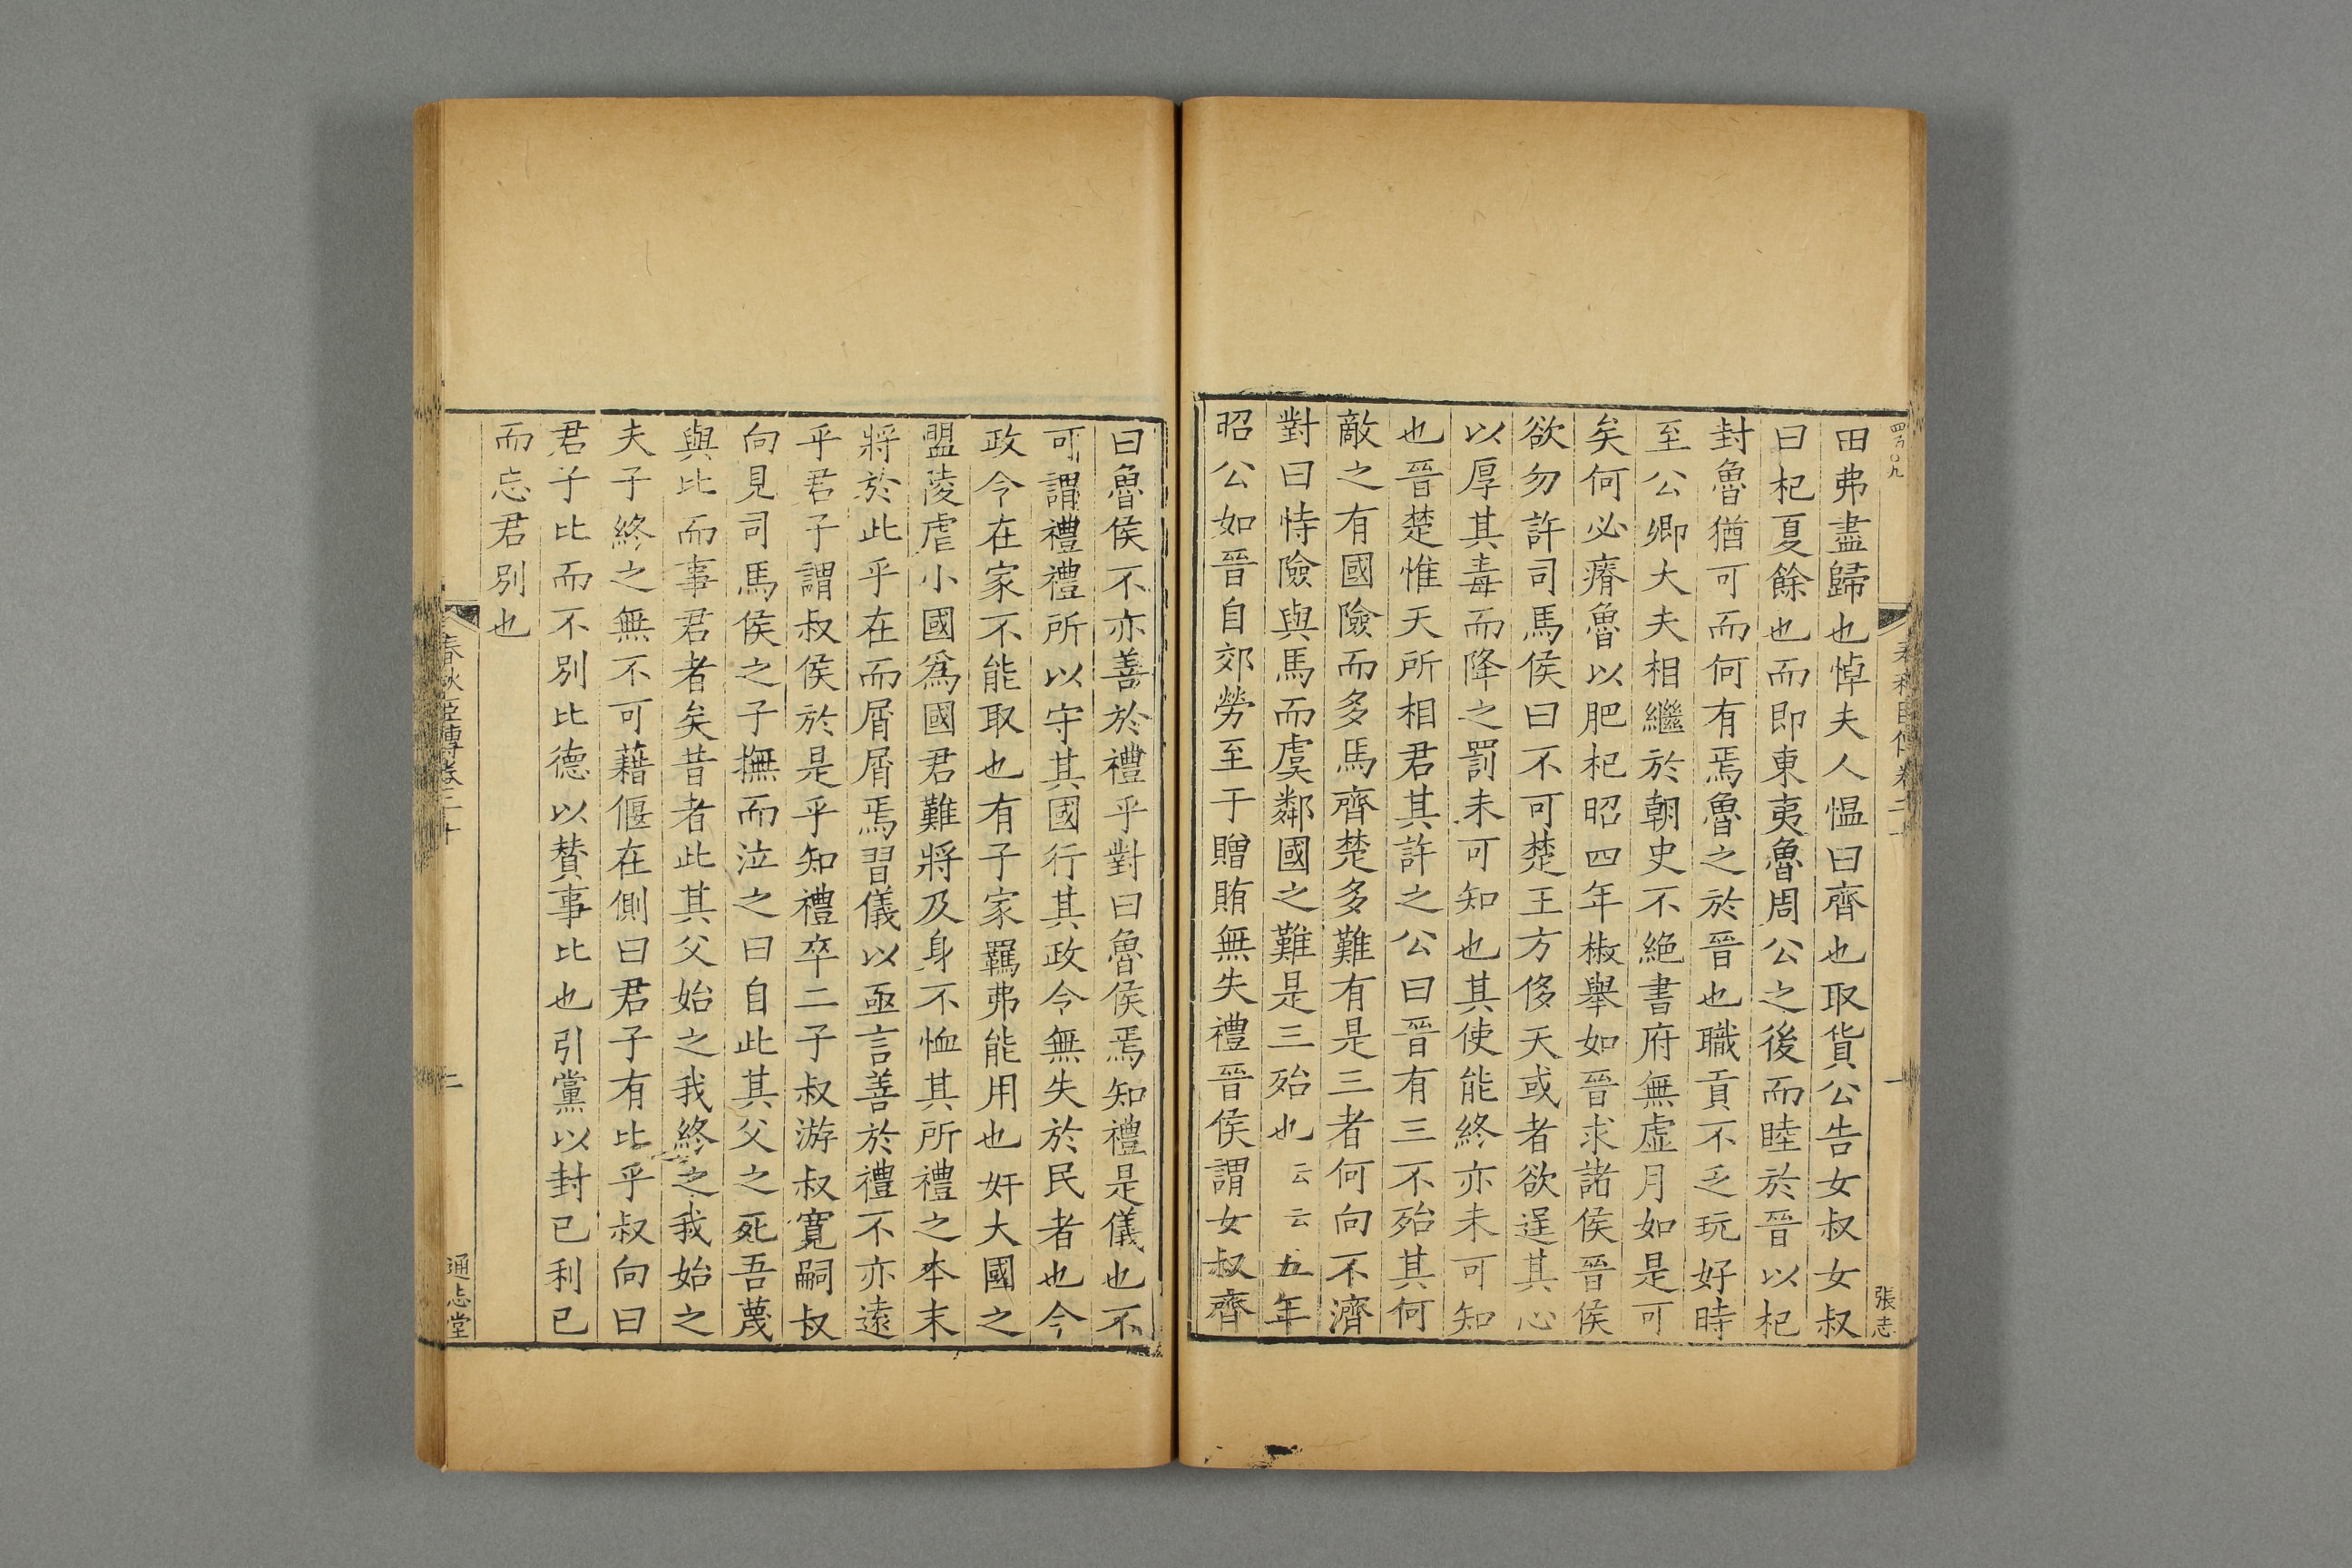 四百〇九
張志
田弗盡歸也悼夫人慍曰齊也取貨公告女叔女叔
曰杞夏餘也而即東夷魯周公之後而睦於晉以杞
封魯猶可而何有焉魯之於晉也職貢不乏玩好時
至公卿大夫相繼於朝史不絕書府無虛月如是可
矣何必瘠魯以肥杞昭四年椒舉如晉求諸侯晉侯
欲勿許司馬侯曰不可楚王方侈天或者欲逞其心
以厚其毒而降之罰未可知也其使能終亦未可知
也晉楚惟天所相君其許之公曰晉有三不殆其何
敵之有國險而多馬齊楚多難有是三者何向不濟
對曰恃險與馬而虞鄰國之難是三殆也云云五年
昭公如晉自郊勞至于贈賄無失禮晉侯謂女叔齊
曰魯侯不亦善於禮乎對曰魯侯焉知禮是儀也不
可謂禮禮所以守其國行其政令無失於民者也今
政令在家不能取也有子家羈弗能用也奸大國之
盟陵虐小國為國君難將及身不恤其所禮之本末
將於此乎在而屑屑焉習儀以亟言善於禮不亦遠
乎君子謂叔侯於是乎知禮卒二子叔游叔寬嗣叔
向見司馬侯之子撫而泣之曰自此其父之死吾蔑
與比而事君者矣昔者此其父始之我終之我始之
夫子終之無不可藉偃在側曰君子有比乎叔向曰
君子比而不別比德以贊事比也引黨以封已利已
而忘君別也
春秋臣傳卷二十
二
通志堂